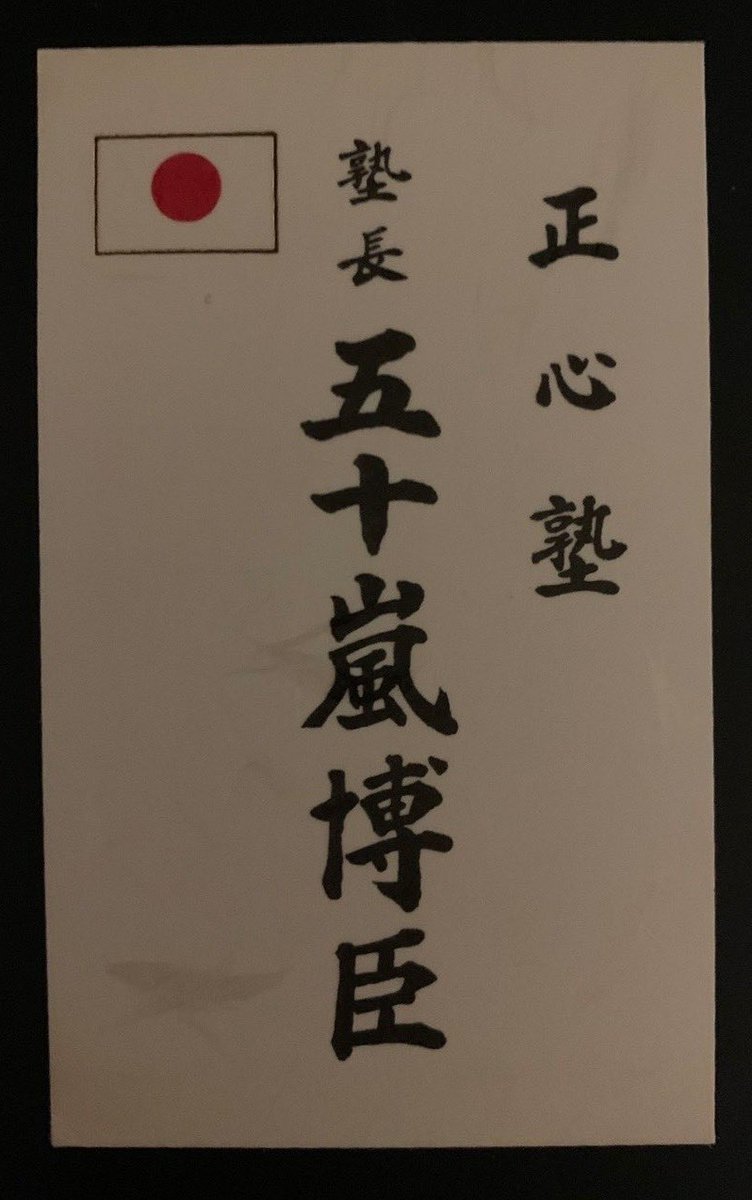 正心塾
塾長 五十嵐博臣